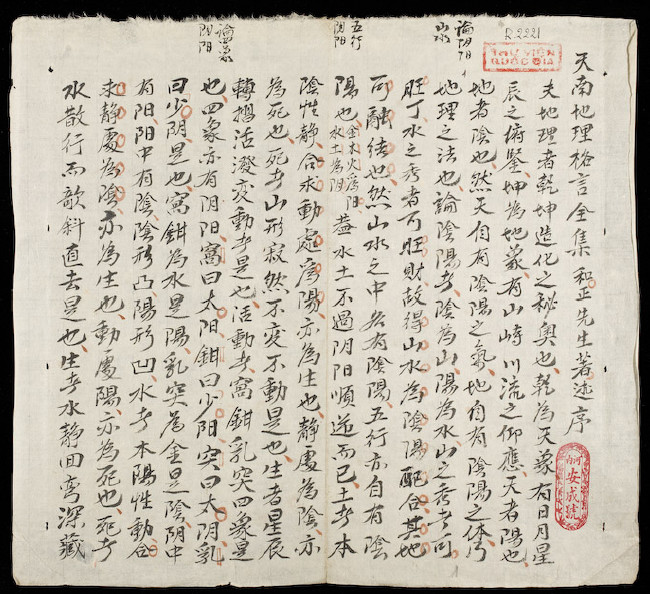 R.2221
THƯ VIỆN
QUỐC GIA
天南地理格言全集和正先生著述序
夫地理者乾坤造化之秘奥也乾為天象有日月星
辰之俯鑒坤為地象有山峙川流之仰應天者陽也
地者陰也然天自有陰陽之氣地自有陰陽之体乃
論阴阳
山水
地理之法也論陰陽者陰為山陽為水山之秀者可
旺丁水之秀者可旺財故得山水為陰陽配合其地
可融結也然山水之中各有陰陽五行亦自有陰
五行
阴阳
陽也金木火為阳水土為阴蓋水土不過阴阳順逆而已土者本
陰性静合求動處為陽亦為生也静處為陰亦
為死也死者山形寂然不变不動是也生者星辰
轉摺活潑变動者是也活動者窩鉗乳突四象是
論四象
阴阳
也四象亦有阴阳窩曰太阳鉗曰少阳突曰太阴乳
曰少阴是也窩鉗為水是陽乳突為金是陰阴中
有阳阳中有陰陰形凸陽形凹水者本陽性動合
求静處為陰亦為生也動處陽亦為死也死者
水散行而欹斜直去是也生者水静回弯深藏
安成號